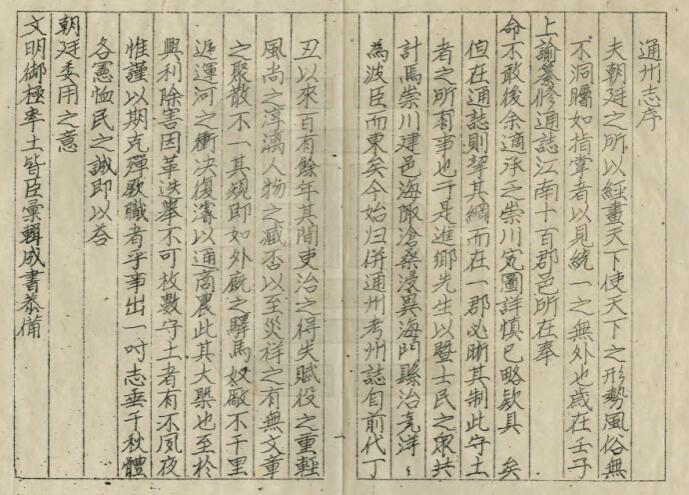 通州志序
夫朝廷之所以經畫天下使天下之形勢風俗無
不洞矚如指掌者以見統一之無外也歲在壬子
上諭纂修通誌江南十百郡邑所在奉
命不敢後余適承乏崇川寃圖詳慎已略欵具 矣
但在通誌則挈其綱而在一郡必晰其制此守土
者之所有事也于是進鄉先生以暨士民之眾共
計焉崇川建邑海陬滄桑浸異海門縣治竟洋〻
為波臣而東矣今始归併通州考州誌自前代丁
丑以來百有餘年其間吏治之得失賦役之重輕
風尚之淳漓人物之臧否以至災祥之有無文章
之聚散不一其規即如外廐之驛馬奴厰不千里
遞運河之衝決復濬以通商農此其大槩也至於
興利除害因革迭舉不可枚數守土者有不夙夜
惟謹以期克殫厥職者乎事出一时志垂千秋體
各憲恤民之誠即以荅
朝廷委用之意
文明御極率土皆臣彙輯成書恭備